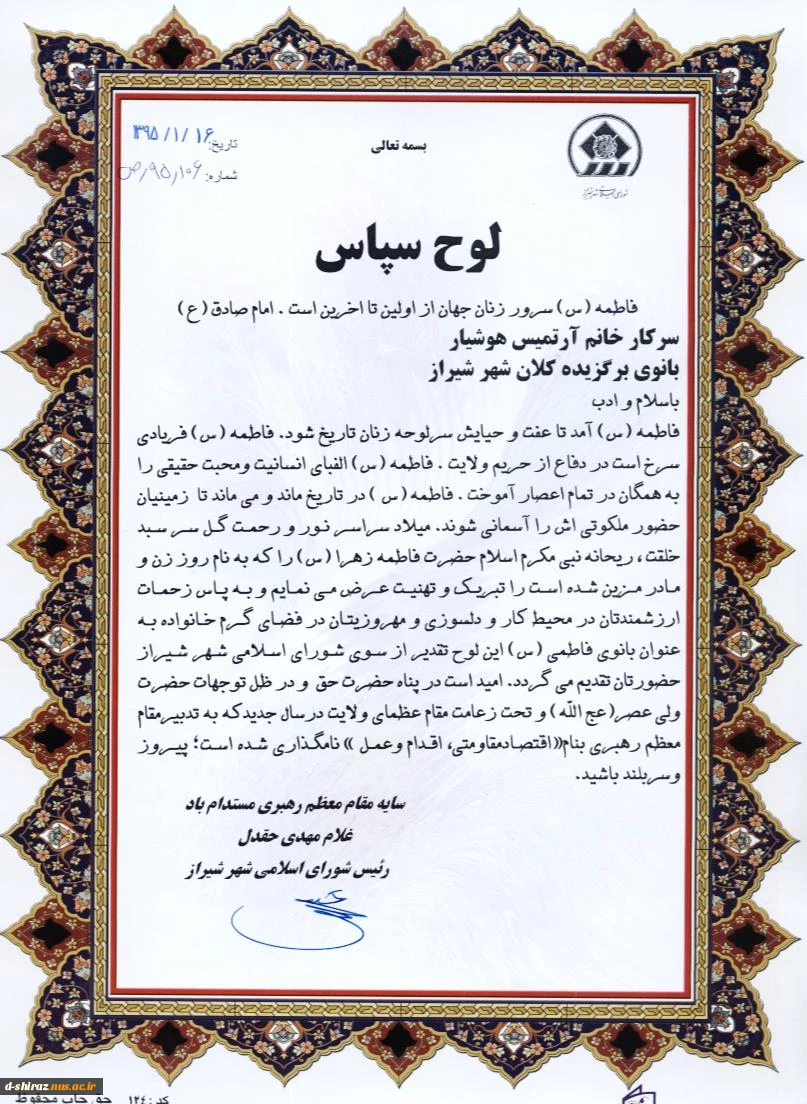 بسمه تعالی
تاریخ: ۱۳۹۵/۱/۱۶
شماره: ۹۵/۱۰۶/ص
شورای اسلامی شهر شیراز
لوح سپاس
فاطمه (س) سرور زنان جهان از اولین تا اخرین است . امام صادق (ع)
سرکار خانم آرتمیس هوشیار
بانوی برگزیده کلان شهر شیراز
باسلام و ادب
فاطمه (س) آمد تا عفت و حیایش سرلوحه زنان تاریخ شود. فاطمه (س) فریادی
سرخ است در دفاع از حریم ولایت . فاطمه (س) الفبای انسانیت ومحبت حقیقی را
به همگان در تمام اعصار آموخت . فاطمه (س) در تاریخ ماند و می ماند تا زمینیان
حضور ملکوتی اش را آسمانی شوند. میلاد سراسر نور و رحمت گل سر سبد
خلقت، ریحانه نبی مکرم اسلام حضرت فاطمه زهرا (س) را که به نام روز زن و
مادر مزین شده است را تبریک و تهنیت عرض می نمایم و به پاس زحمات
ارزشمندتان در محیط کار و دلسوزی و مهروزیتان در فضای گرم خانواده به
عنوان بانوی فاطمی (س) این لوح تقدیر از سوی شورای اسلامی شهر شیراز
حضورتان تقدیم می گردد. امید است در پناه حضرت حق و در ظل توجهات حضرت
ولی عصر(عج الله) و تحت زعامت مقام عظمای ولایت درسال جدیدکه به تدبیرمقام
معظم رهبری بنام«اقتصادمقاومتی، اقدام وعمل » نامگذاری شده است؛ پیروز
و سربلند باشید.
سایه مقام معظم رهبری مستدام باد
غلام مهدی حقدل
رئیس شورای اسلامی شهر شیراز
d-shiraz.nus.ac.ir
کد: ۱۲۴ حق چاپ محفوظ